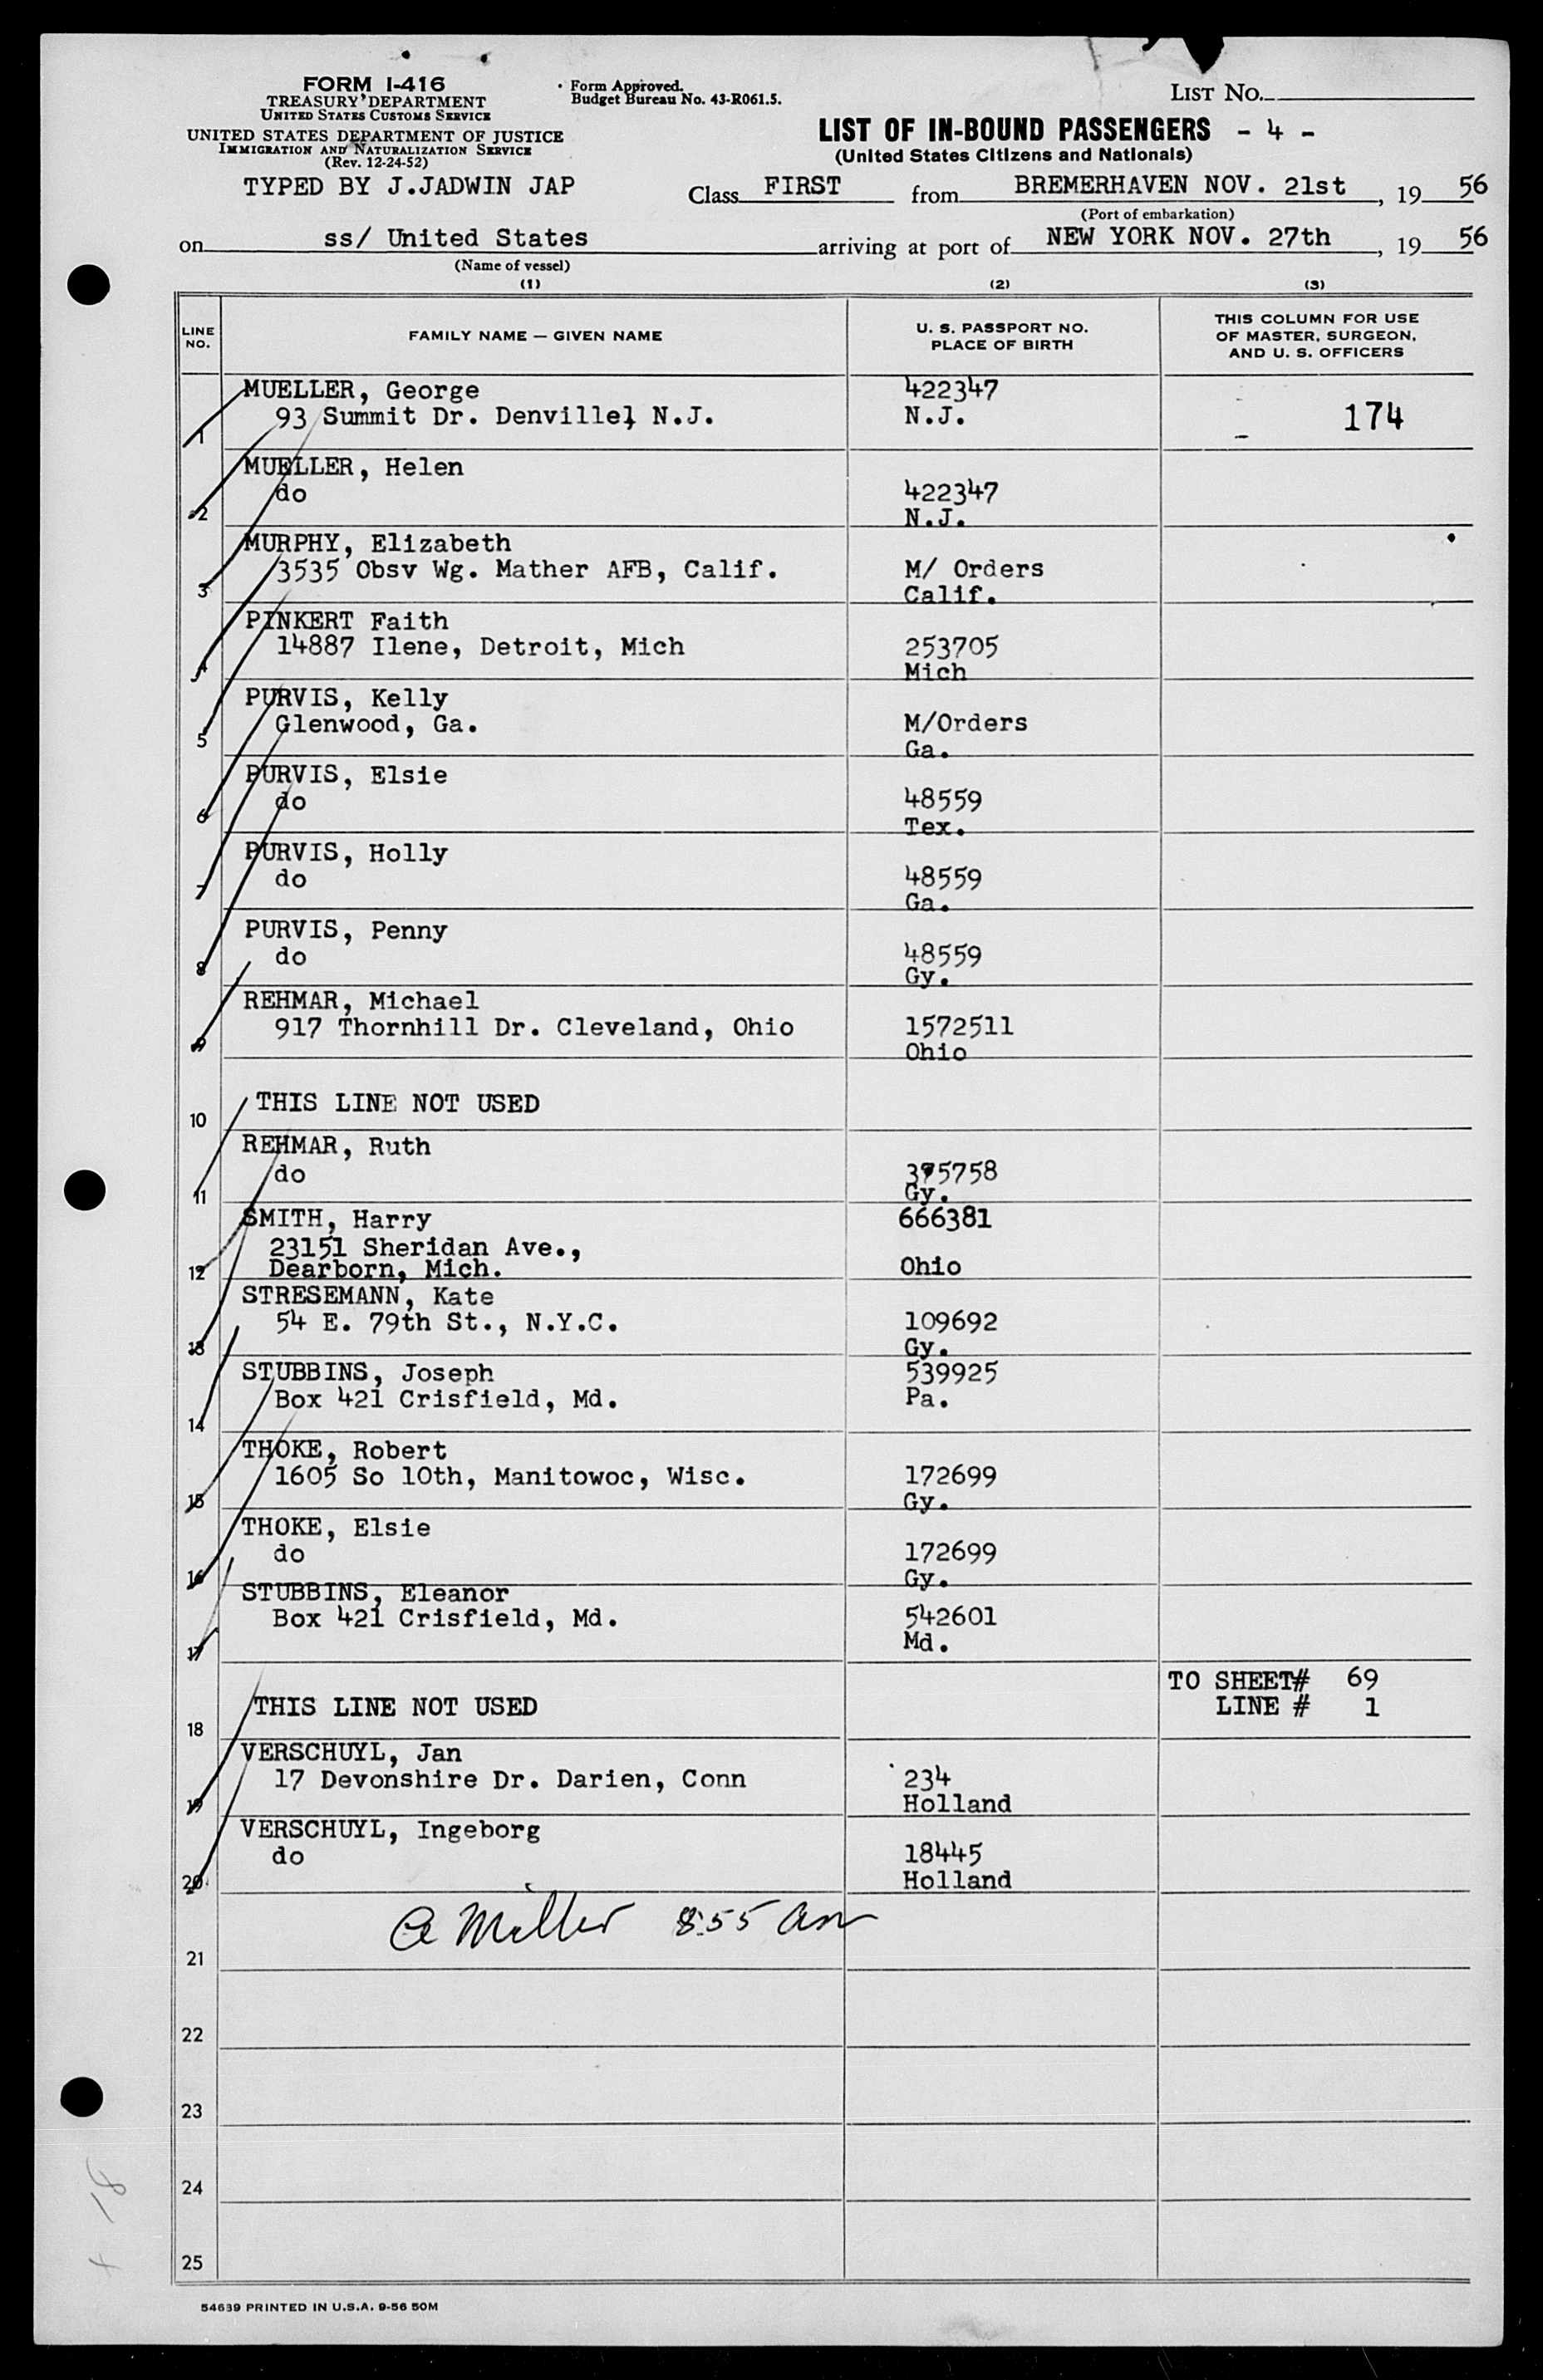 FORM I-416
TREASURY DEPARTMENT
UNITED STATES CUSTOMS SERVICE
UNITED STATES DEPARTMENT OF JUSTICE
IMMIGRATION AND NATURALIZATION SERVICE
(Rev. 12-24-52)
Form Approved.
Budget Bureau No. 43-R061.5.
LIST No.
LIST OF IN-BOUND PASSENGERS - 4 -
(United States Citizens and Nationals)
TYPED BY J.JADWIN JAP
Class FIRST from BREMERHAVEN NOV. 21st, 19 56
(Port of embarkation)
on ss/ United States arriving at port of NEW YORK NOV. 27th, 19 56
(Name of vessel)
(1) (2) (3)
LINE NO. FAMILY NAME — GIVEN NAME U. S. PASSPORT NO. PLACE OF BIRTH THIS COLUMN FOR USE OF MASTER, SURGEON, AND U. S. OFFICERS
MUELLER, George 422347
1 93 Summit Dr. Denville, N.J. N.J. 174
MUELLER, Helen
2 do 422347
N.J.
MURPHY, Elizabeth
3 3535 Obsv Wg. Mather AFB, Calif. M/ Orders
Calif.
PINKERT Faith
4 14887 Ilene, Detroit, Mich 253705
Mich
PURVIS, Kelly
5 Glenwood, Ga. M/Orders
Ga.
PURVIS, Elsie
6 do 48559
Tex.
PURVIS, Holly
7 do 48559
Ga.
PURVIS, Penny
8 do 48559
Gy.
REHMAR, Michael
9 917 Thornhill Dr. Cleveland, Ohio 1572511
Ohio
10 THIS LINE NOT USED
REHMAR, Ruth
11 do 375758
Gy.
SMITH, Harry 666381
23151 Sheridan Ave.,
12 Dearborn, Mich. Ohio
STRESEMANN, Kate
13 54 E. 79th St., N.Y.C. 109692
Gy.
STUBBINS, Joseph 539925
14 Box 421 Crisfield, Md. Pa.
THOKE, Robert
15 1605 So 10th, Manitowoc, Wisc. 172699
Gy.
THOKE, Elsie
16 do 172699
Gy.
STUBBINS, Eleanor
17 Box 421 Crisfield, Md. 542601
Md.
TO SHEET# 69
18 THIS LINE NOT USED LINE # 1
VERSCHUYL, Jan
19 17 Devonshire Dr. Darien, Conn 234
Holland
VERSCHUYL, Ingeborg
20 do 18445
Holland
Miller 8:55 am
21
22
23
24
25
54639 PRINTED IN U.S.A. 9-56 50M